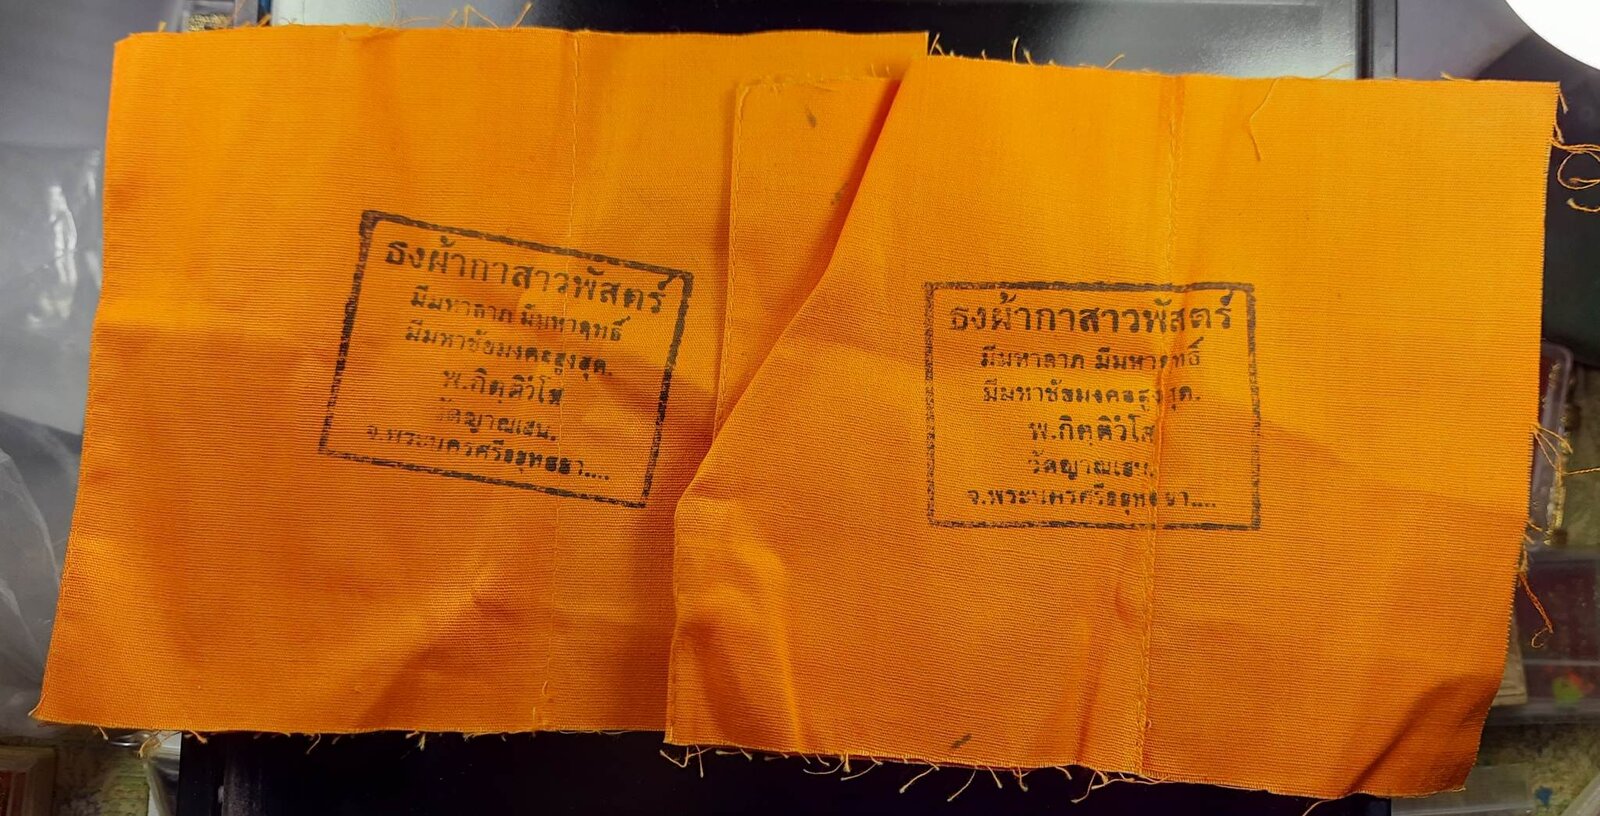 ธงผ้ากาสาวพัสตร์
มีมหาลาภ มีมหาฤทธิ์
มีมหาชัยมงคลสูงสุด.
พ.กิตฺติวํโส
วัดญาณเสน.
จ.พระนครศรีอยุทธยา....
ธงผ้ากาสาวพัสตร์
มีมหาลาภ มีมหาฤทธิ์
มีมหาชัยมงคลสูงสุด.
พ.กิตฺติวํโส
วัดญาณเสน.
จ.พระนครศรีอยุทธยา....